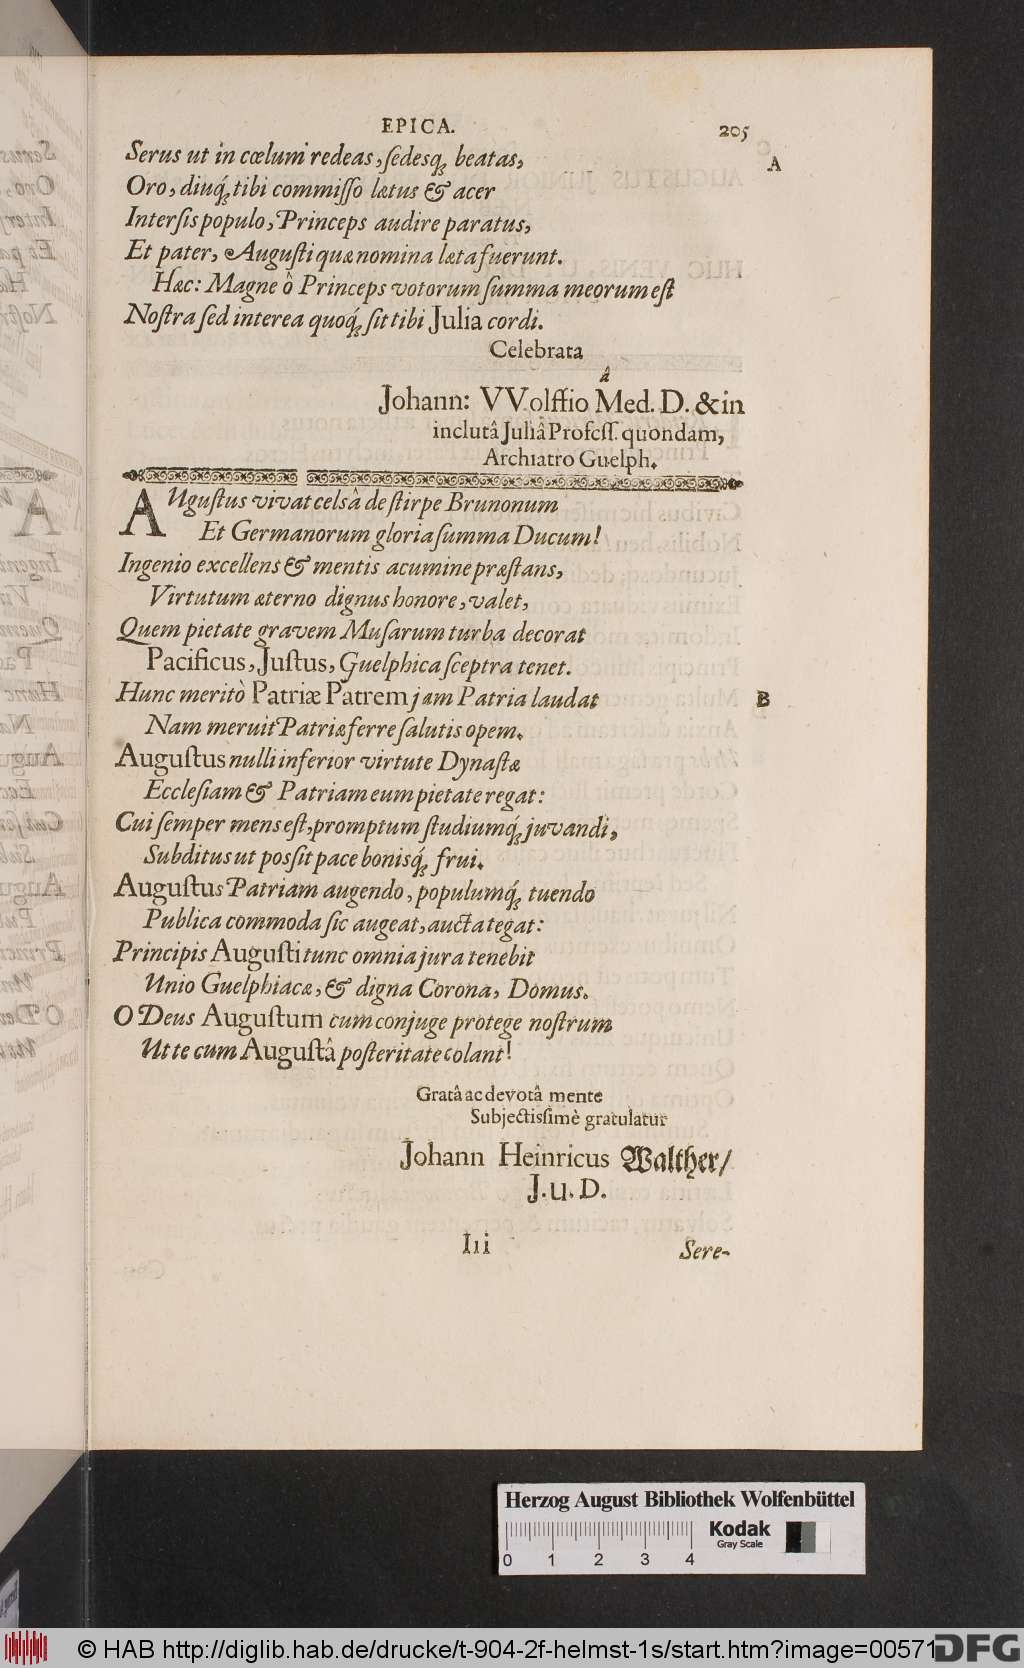 EPICA. 205
Serus ut in cœlum redeas, ſedesq́; beatas,
A
Oro, diuq́; tibi commiſſo lætus & acer
Interſis populo, Princeps audire paratus,
Et pater, Auguſti quæ nomina læta fuerunt.
Hæc: Magne ô Princeps votorum ſumma meorum eſt
Noſtra ſed interea quoq́; ſit tibi Julia cordi.
Celebrata
â
Johann: VVolffio Med. D. & in
inclutâ Juliâ Profeſſ. quondam,
Archiatro Guelph.
AUguſtus vivat celsâ de ſtirpe Brunonum
Et Germanorum gloria ſumma Ducum!
Ingenio excellens & mentis acumine præſtans,
Virtutum æterno dignus honore, valet,
Quem pietate gravem Muſarum turba decorat
Pacificus, Juſtus, Guelphica ſceptra tenet.
Hunc meritò Patriæ Patrem jam Patria laudat
B
Nam meruit Patriæ ferre ſalutis opem.
Auguſtus nulli inferior virtute Dynaſtæ
Eccleſiam & Patriam eum pietate regat:
Cui ſemper mens eſt, promptum ſtudiumq́; juvandi,
Subditus ut poſſit pace bonisq́; frui.
Auguſtus Patriam augendo, populumq́; tuendo
Publica commoda ſic augeat, aucta tegat:
Principis Auguſti tunc omnia jura tenebit
Unio Guelphiacæ, & digna Corona, Domus.
O Deus Auguſtum cum conjuge protege noſtrum
Ut te cum Auguſtâ poſteritate colant!
Gratâ ac devotâ mente
Subjectiſſimè gratulatur
Johann Heinricus Walther/
J. u. D.
Iii
Sere-
Herzog August Bibliothek Wolfenbüttel
Kodak
Gray Scale
0 1 2 3 4
© HAB http://diglib.hab.de/drucke/t-904-2f-helmst-1s/start.htm?image=00571
DFG